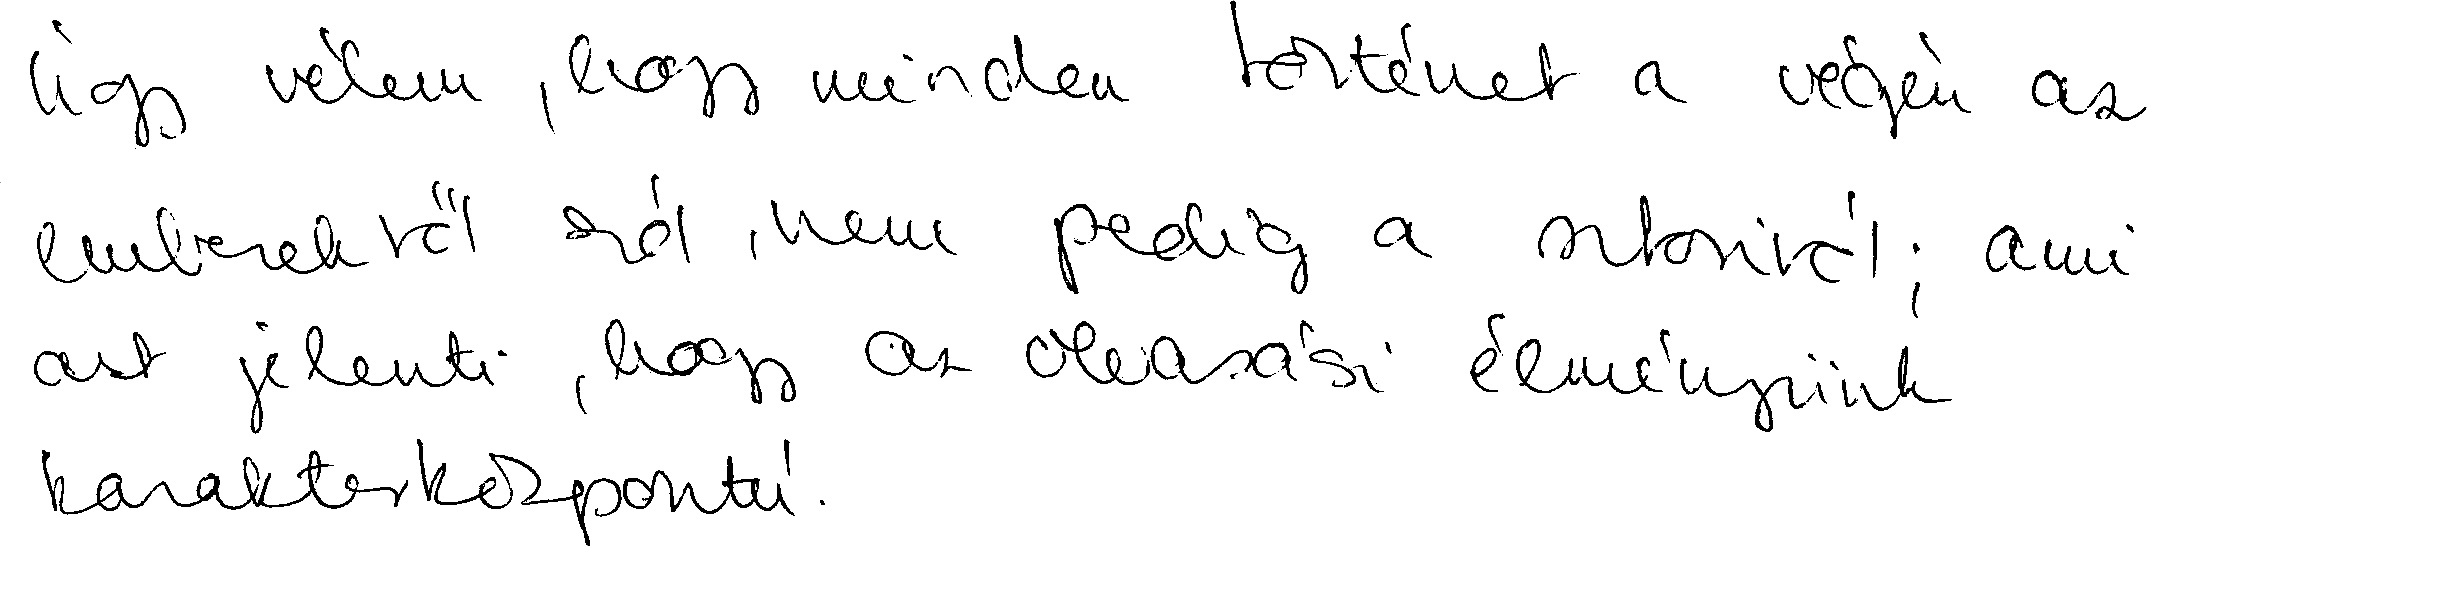 Úgy vélem, hogy minden történet a végén az
emberekről szól, nem pedig a sztoriról; ami
azt jelenti, hogy az olvasási élményünk
karakterközpontú.